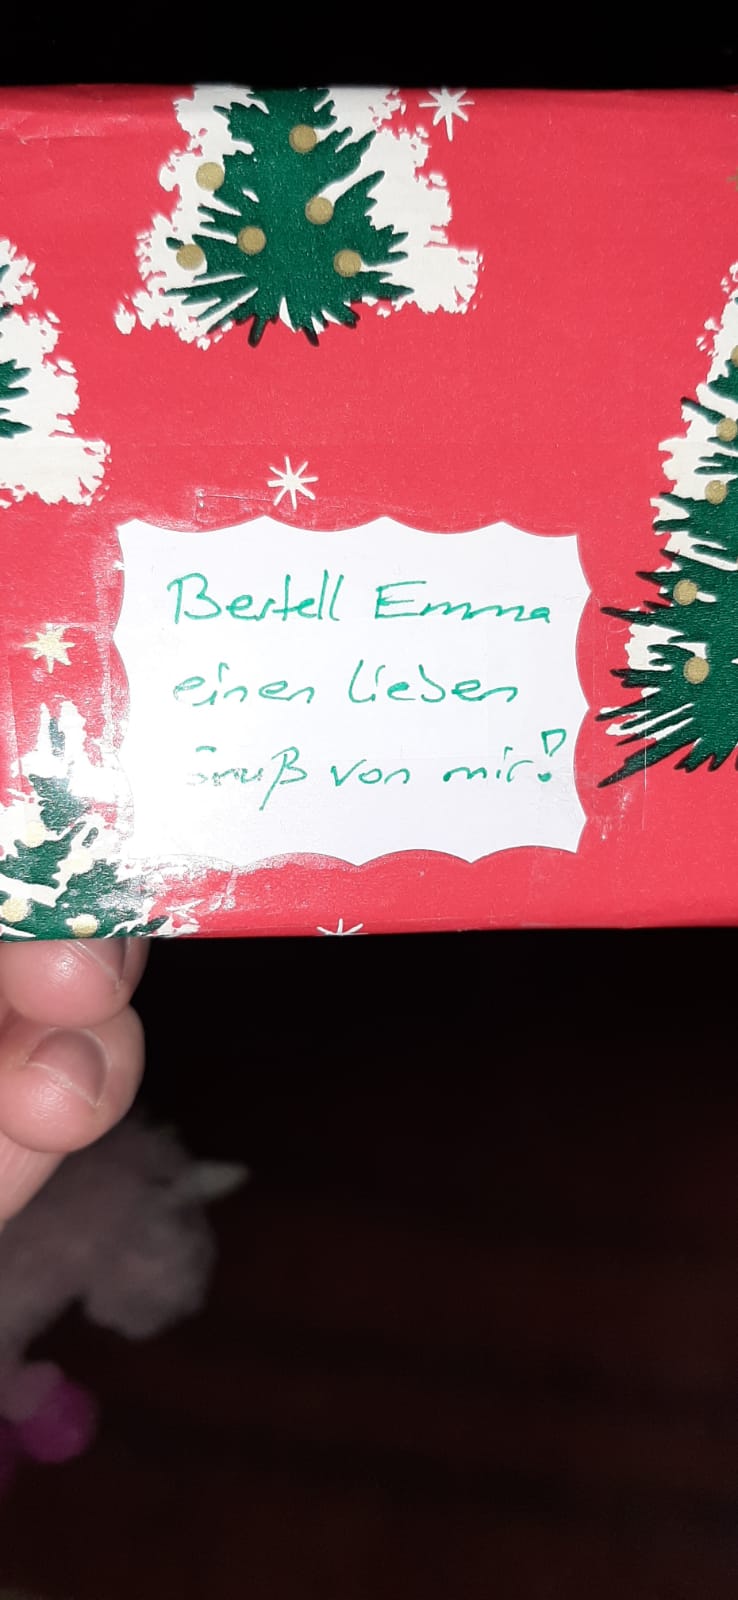 Bestell Emma
einen lieben
Gruß von mir!